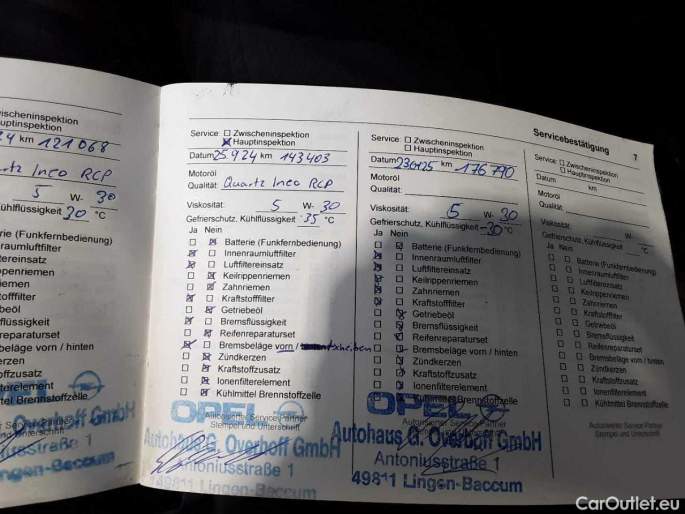 Servicebestätigung 7
wischeninspektion
auptinspektion
24 km 121 068
artz Ineo RCP
5 W- 30
Kühlflüssigkeit 30 °C
ein
terie (Funkfernbedienung)
enraumluftfilter
ftfiltereinsatz
ilrippenriemen
hnriemen
aftstofffilter
triebeöl
msflüssigkeit
enreparaturset
nsbeläge vorn / hinten
dkerzen
stoffzusatz
nfilterelement
mittel Brennstoffzelle
G. Overhoff GmbH
Antoniusstraße 1
Lingen-Baccum
Service: Zwischeninspektion
Hauptinspektion
Datum 25.9.24 km 143403
Motoröl
Qualität: Quartz Ineo RCP
Viskosität: 5 W- 30
Gefrierschutz, Kühlflüssigkeit -35 °C
Ja Nein
Batterie (Funkfernbedienung)
Innenraumluftfilter
Luftfiltereinsatz
Keilrippenriemen
Zahnriemen
Kraftstofffilter
Getriebeöl
Bremsflüssigkeit
Reifenreparaturset
Bremsbeläge vorn /
Zündkerzen
Kraftstoffzusatz
Ionenfilterelement
Kühlmittel Brennstoffzelle
OPEL
Autorisierter Service Partner
Stempel und Unterschrift
Autohaus G. Overhoff GmbH
Antoniusstraße 1
49811 Lingen-Baccum
Service: Zwischeninspektion
Hauptinspektion
Datum km 176 790
Motoröl
Qualität:
Viskosität: 5 W- 30
Gefrierschutz, Kühlflüssigkeit -30 °C
Ja Nein
Batterie (Funkfernbedienung)
Innenraumluftfilter
Luftfiltereinsatz
Keilrippenriemen
Zahnriemen
Kraftstofffilter
Getriebeöl
Bremsflüssigkeit
Reifenreparaturset
Bremsbeläge vorn / hinten
Zündkerzen
Kraftstoffzusatz
Ionenfilterelement
Kühlmittel Brennstoffzelle
OPEL
Autorisierter Service Partner
Autohaus G. Overhoff GmbH
Antoniusstraße 1
49811 Lingen-Baccum
Service: Zwischeninspektion
Hauptinspektion
Datum km
Motoröl
Qualität:
Viskosität: W-
Gefrierschutz, Kühlflüssigkeit °C
Ja Nein
Batterie (Funkfernbedienung)
Innenraumluftfilter
Luftfiltereinsatz
Keilrippenriemen
Zahnriemen
Kraftstofffilter
Getriebeöl
Bremsflüssigkeit
Reifenreparaturset
Bremsbeläge vorn / hinten
Zündkerzen
Kraftstoffzusatz
Ionenfilterelement
Kühlmittel Brennstoffzelle
Autorisierter Service Partner
Stempel und Unterschrift
CarOutlet.eu